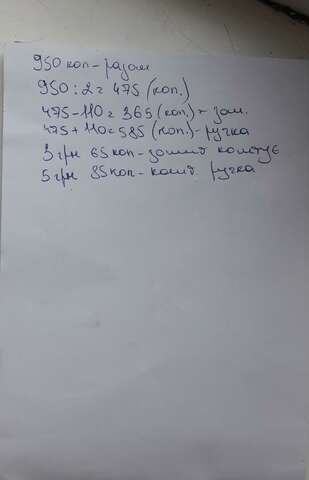 950 коп - разом
950 : 2 = 475 (коп.)
475 - 110 = 365 (коп.) - зош.
475 + 110 = 585 (коп.) - ручка
3 грн 65 коп - зошит коштує
5 грн 85 коп - кошт. ручка